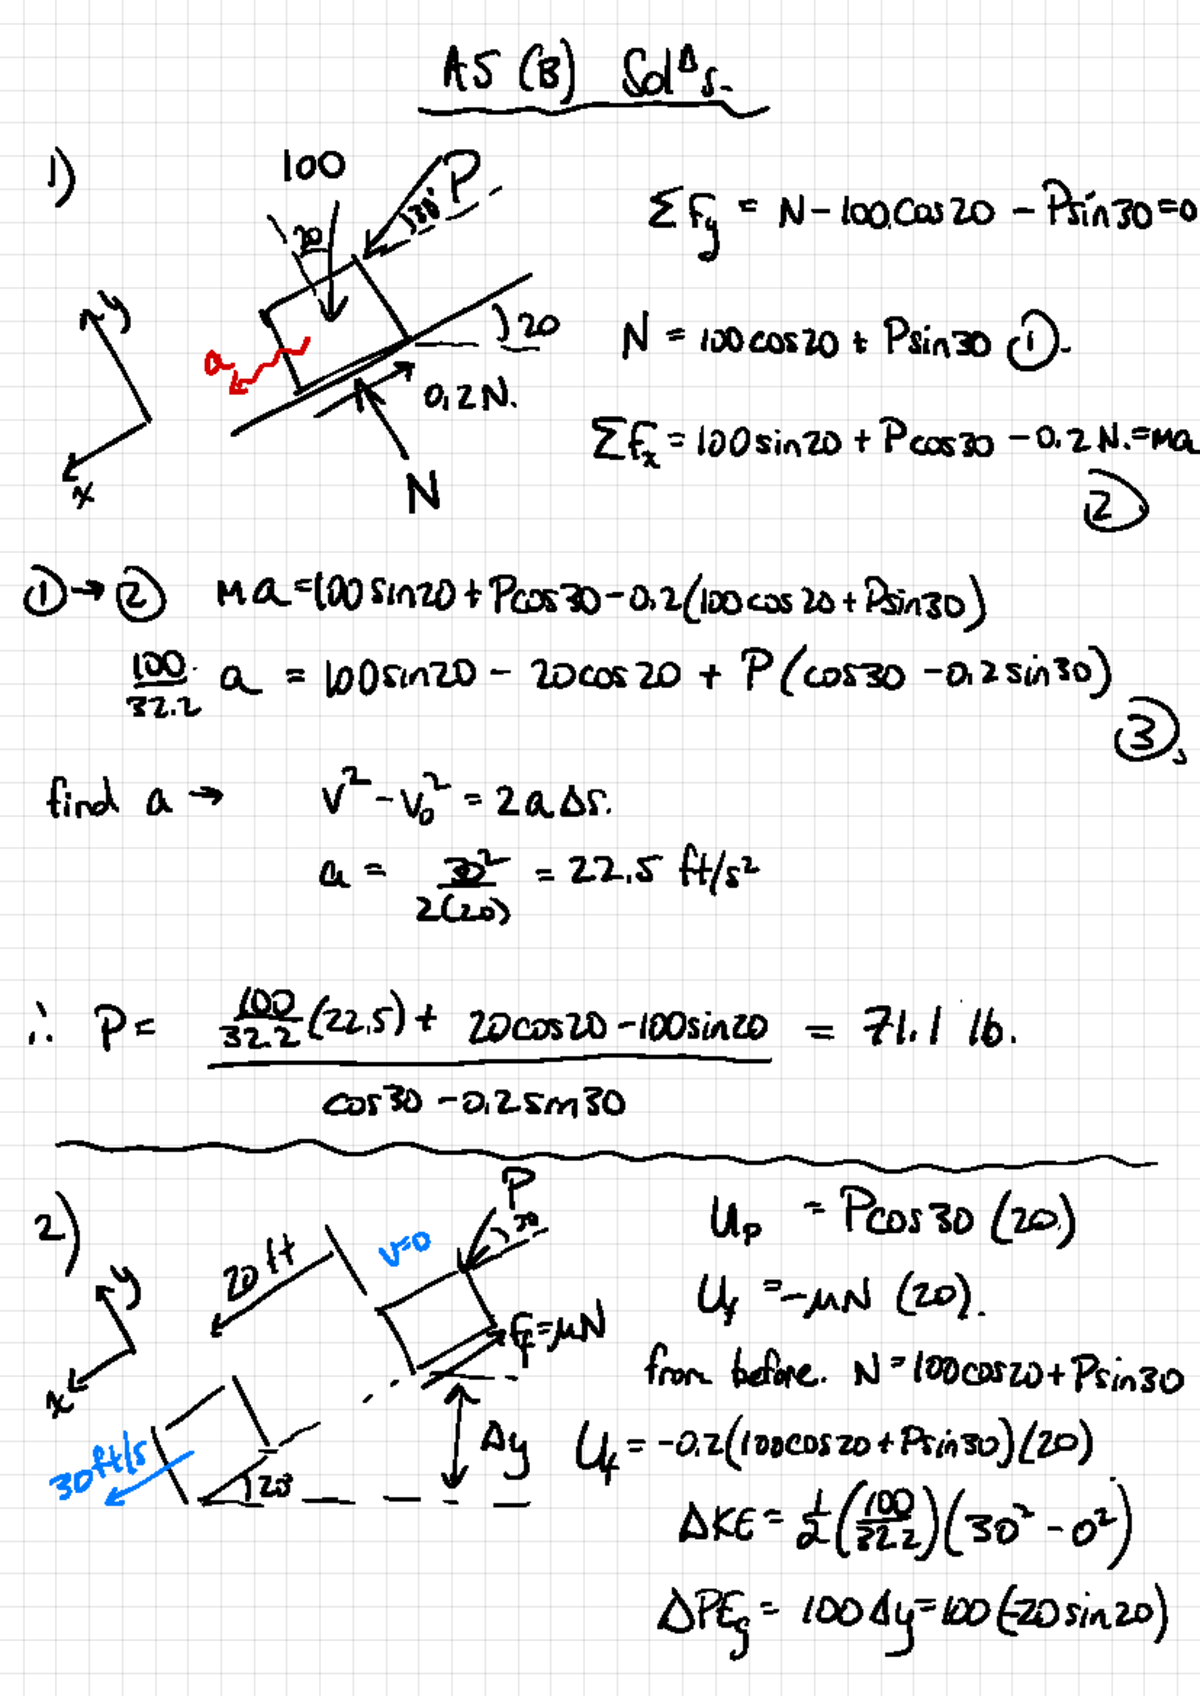 A5 (B) Sol^Δs.
1)
100
P
30°
20
y
a
20
0.2N.
x
N
ΣFy = N - 100Cos20 - Psin30 = 0
N = 100cos20 + Psin30 ①.
ΣFx = 100sin20 + Pcos30 - 0.2N. = ma
②
① → ② ma = 100sin20 + Pcos30 - 0.2(100cos20 + Psin30)
100/32.2 a = 100sin20 - 20cos20 + P(cos30 - 0.2sin30)
③
find a → v² - v₀² = 2aΔs.
a = 30²/2(20) = 22.5 ft/s²
∴ P = (100/32.2 (22.5) + 20cos20 - 100sin20)/(cos30 - 0.2sin30) = 71.1 lb.
2)
20ft
v=0
P
30
y
x
Ff=μN
30ft/s
20°
Δy
Up = Pcos30 (20)
Uf = -μN (20).
from before. N = 100cos20 + Psin30
Uf = -0.2(100cos20 + Psin30)(20)
ΔKE = 1/2 (100/32.2)(30² - 0²)
ΔPEg = 100Δy = 100(-20sin20)